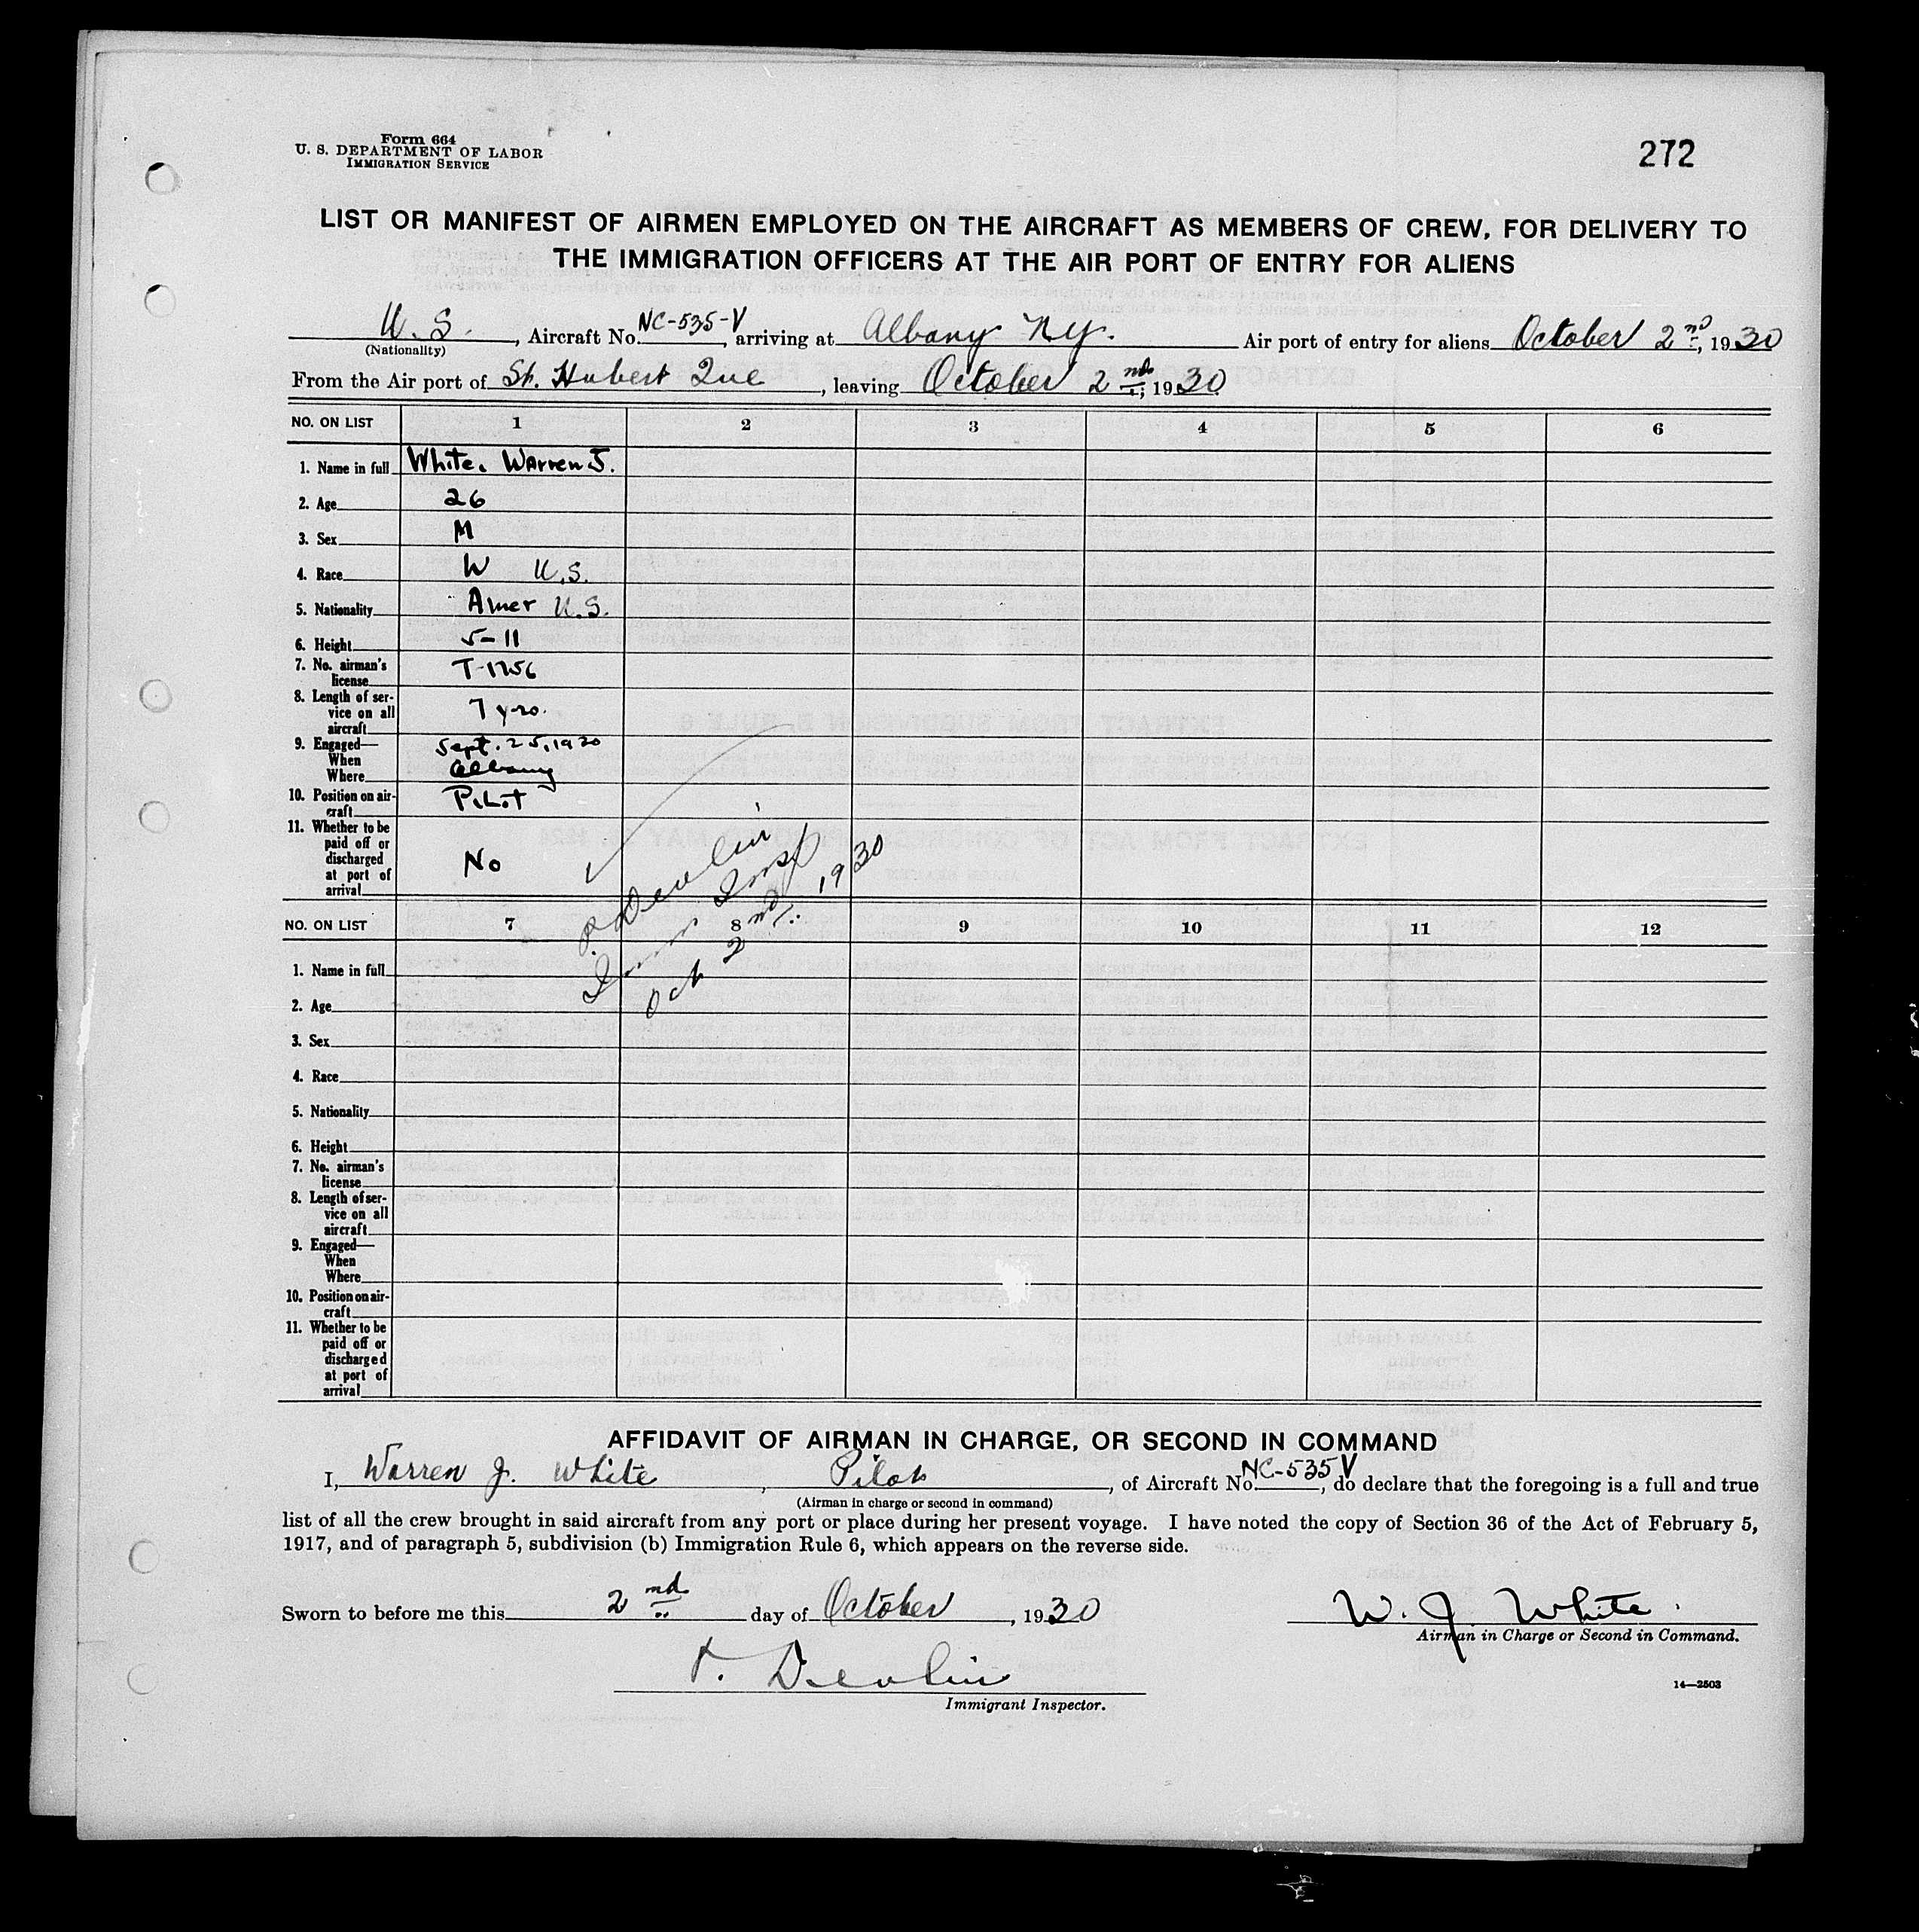 Form 664
U. S. DEPARTMENT OF LABOR
IMMIGRATION SERVICE
272
LIST OR MANIFEST OF AIRMEN EMPLOYED ON THE AIRCRAFT AS MEMBERS OF CREW, FOR DELIVERY TO
THE IMMIGRATION OFFICERS AT THE AIR PORT OF ENTRY FOR ALIENS
U. S. , Aircraft No. NC-535-V, arriving at Albany N.Y. Air port of entry for aliens October 2nd, 1930
(Nationality)
From the Air port of St. Hubert Que , leaving October 2nd, 1930
NO. ON LIST 1 2 3 4 5 6
1. Name in full White. Warren J.
2. Age 26
3. Sex M
4. Race W U.S.
5. Nationality Amer U.S.
6. Height 5-11
7. No. airman's
license T-1756
8. Length of ser-
vice on all 7 yrs.
aircraft
9. Engaged— Sept. 25, 1930
When
Where Albany
10. Position on air-
craft Pilot
11. Whether to be
paid off or
discharged No
at port of
arrival
P. Devlin
Imm Insp
Oct 2nd. 1930
NO. ON LIST 7 8 9 10 11 12
1. Name in full
2. Age
3. Sex
4. Race
5. Nationality
6. Height
7. No. airman's
license
8. Length of ser-
vice on all
aircraft
9. Engaged—
When
Where
10. Position on air-
craft
11. Whether to be
paid off or
discharged
at port of
arrival
AFFIDAVIT OF AIRMAN IN CHARGE, OR SECOND IN COMMAND
I, Warren J. White , Pilot , of Aircraft No. NC-535V, do declare that the foregoing is a full and true
(Airman in charge or second in command)
list of all the crew brought in said aircraft from any port or place during her present voyage. I have noted the copy of Section 36 of the Act of February 5,
1917, and of paragraph 5, subdivision (b) Immigration Rule 6, which appears on the reverse side.
Sworn to before me this 2nd day of October , 1930
W. J. White.
Airman in Charge or Second in Command.
P. Devlin
Immigrant Inspector.
14—2503